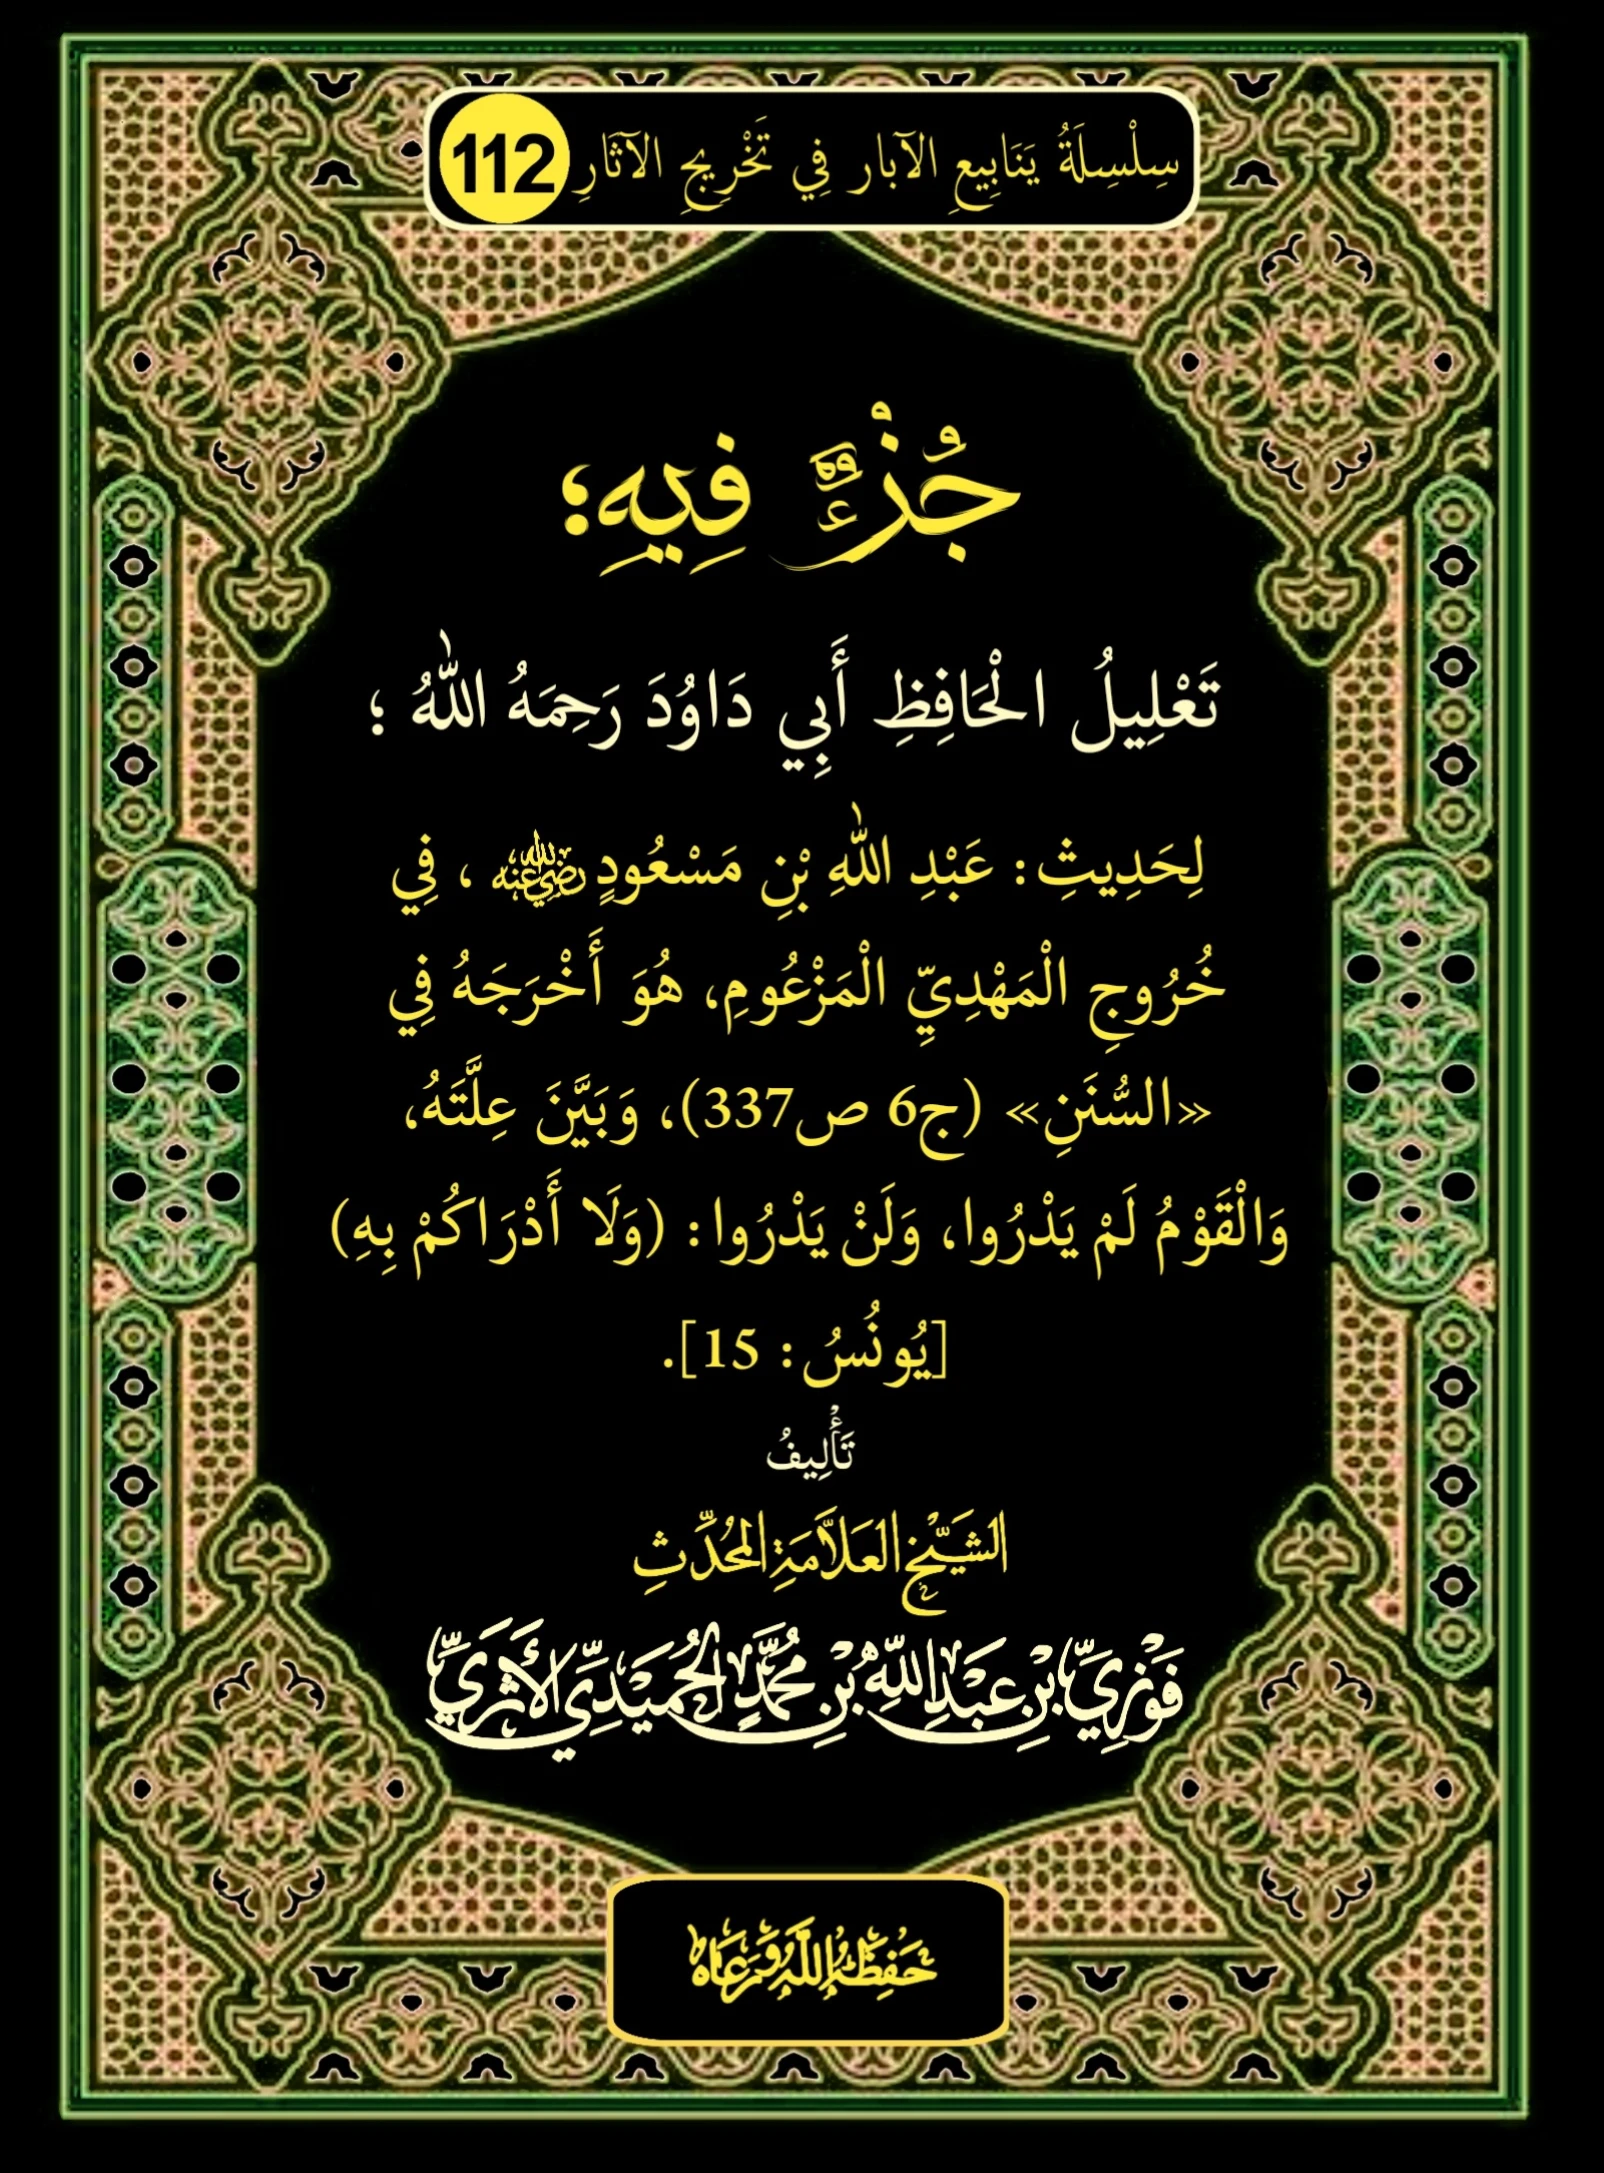 سِلْسِلَةُ يَنَابِيعِ الآبار فِي تَخْرِيجِ الآثَارِ 112
جُزْءٌ فِيهِ؛
تَعْلِيلُ الْحَافِظِ أَبِي دَاوُدَ رَحِمَهُ اللهُ ؛
لِحَدِيثِ: عَبْدِ اللهِ بْنِ مَسْعُودٍ رضي الله عنه ، فِي
خُرُوجِ الْمَهْدِيِّ الْمَزْعُومِ، هُوَ أَخْرَجَهُ فِي
«السُّنَنِ» (ج6 ص337)، وَبَيَّنَ عِلَّتَهُ،
وَالْقَوْمُ لَمْ يَدْرُوا، وَلَنْ يَدْرُوا: (وَلَا أَدْرَاكُمْ بِهِ)
[يُونُسُ: 15].
تَأْلِيفُ
الشَّيْخِ العَلاَّمَةِ المُحَدِّثِ
فَوْزِيِّ بْنِ عَبْدِ اللَّهِ بْنِ مُحَمَّدٍ الحُمَيْدِيِّ الأَثَرِيِّ
حَفِظَهُ اللَّهُ وَرَعَاهُ